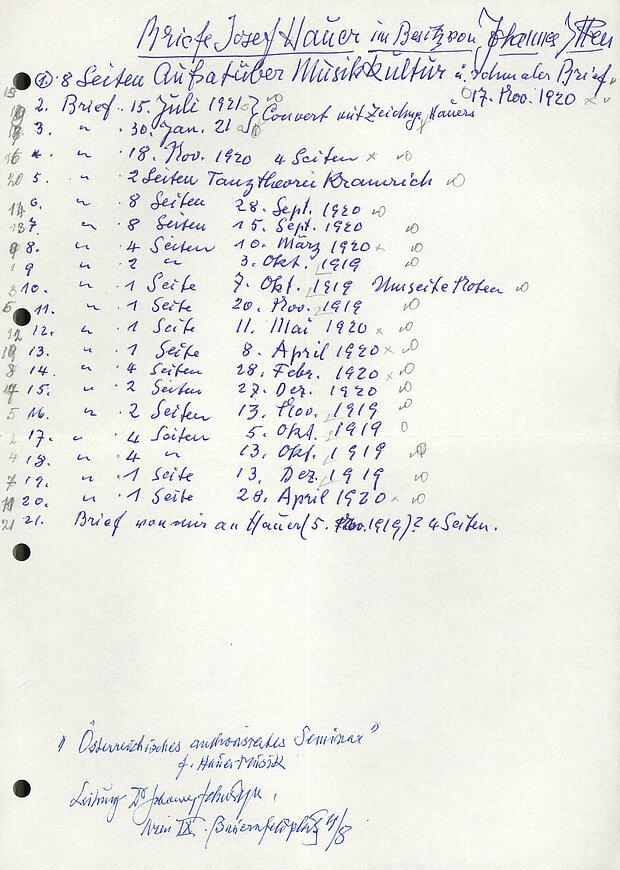 Briefe Josef Hauer im Besitz von Johannes Itten
① 8 Seiten Aufsatz über Musikkultur u. schmaler Brief
17. Nov. 1920
2. Brief . 15. Juli 1921 } Couvert mit Zeichng Hauers
3. " . 30. Jan. 21
16 4. " . 18. Nov. 1920 4 Seiten x
20 5. " . 2 Seiten Tanztheorie Kramrich
14 6. " . 8 Seiten 28. Sept. 1920
13 7. " . 8 Seiten 15. Sept. 1920
9 8. " . 4 Seiten 10. März 1920 x
1 9 " . 2 " 3. Okt. 1919
3 10. " . 1 Seite 7. Okt. 1919 Umseite Noten
6 11. " . 1 Seite 20. Nov. 1919
12 12. " . 1 Seite 11. Mai 1920 x
13. " . 1 Seite 8. April 1920 x
8 14. " . 4 Seiten 28. Febr. 1920 x
17 15. " . 2 Seiten 27. Dez. 1920
5 16. " . 2 Seiten 13. Nov. 1919
2 17. " . 4 Seiten 5. Okt. 1919
4 18. " . 4 " 13. Okt. 1919
7 19. " . 1 Seite 13. Dez. 1919
11 20. " . 1 Seite 28. April 1920 x
21 21. Brief von mir an Hauer (5. Nov. 1919)? 4 Seiten.
" Österreichisches Seminar "
f. Hauer Musik
Leitung Dr Johannes
Wien IX. Bauernfeldplatz 4/8